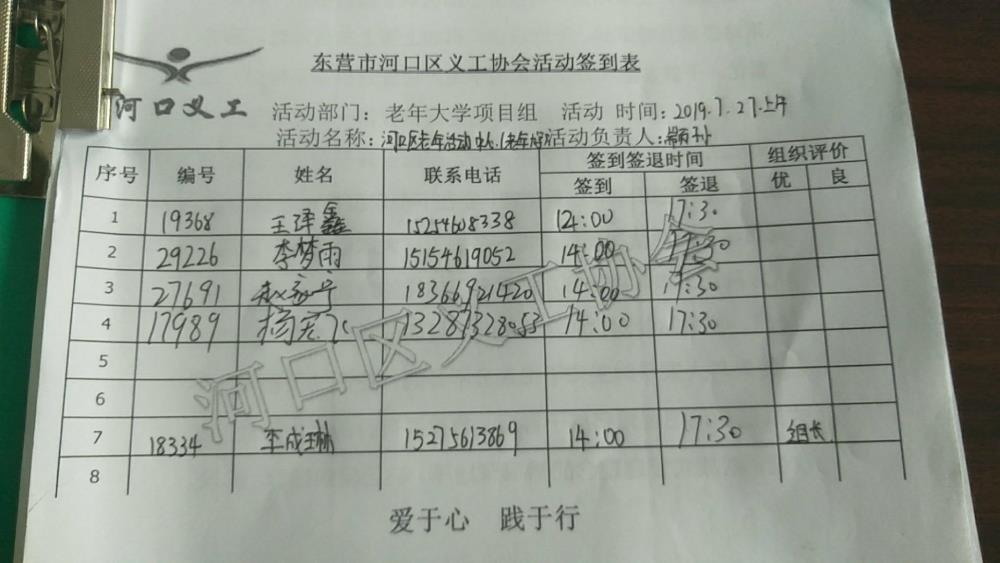 东营市河口区义工协会活动签到表
河口义工
活动部门: 老年大学项目组 活动 时间: 2019.7.27.上午
活动名称: 河口区老年活动中心(老年 活动负责人:
序号 编号 姓名 联系电话 签到签退时间 组织评价
签到 签退 优 良
1 19368 王泽鑫 15254608338 14:00 17:30
2 29226 李梦雨 15154619052 14:00 17:30
3 27691 赵家宁 18366921420 14:00 17:30
4 17989 杨宏飞 13287328053 14:00 17:30
5
6
7 18334 李成琳 15275613869 14:00 17:30 组长
8
爱于心 践于行
河口区义工协会